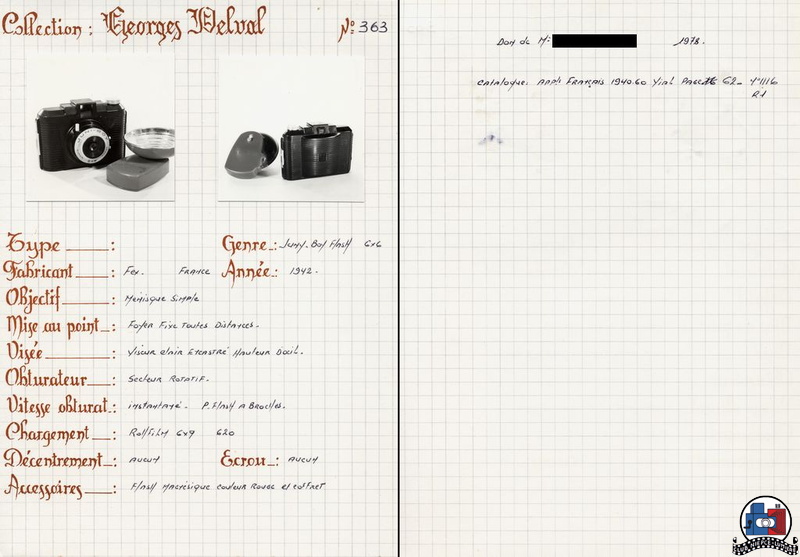 Collection : Georges Delval
N° 363
Type :
Genre : Jumy. Box Flash 6x6
Fabricant : Fex. France
Année : 1942.
Objectif : Menisque Simple
Mise au point : Foyer Fixe Toutes Distances.
Visée : Viseur clair Encastré Hauteur D'oeil.
Obturateur : Secteur Rotatif.
Vitesse obturat. : instantané. P. Flash A Broches.
Chargement : Rollfilm 6x9 620
Décentrement : Aucun
Ecrou : Aucun
Accessoires : Flash Magnésique couleur Rouge et coffret
Don de Mr 1978.
Catalogue. App. Français 1940.60 Vial Page 62_ N°1116
R1